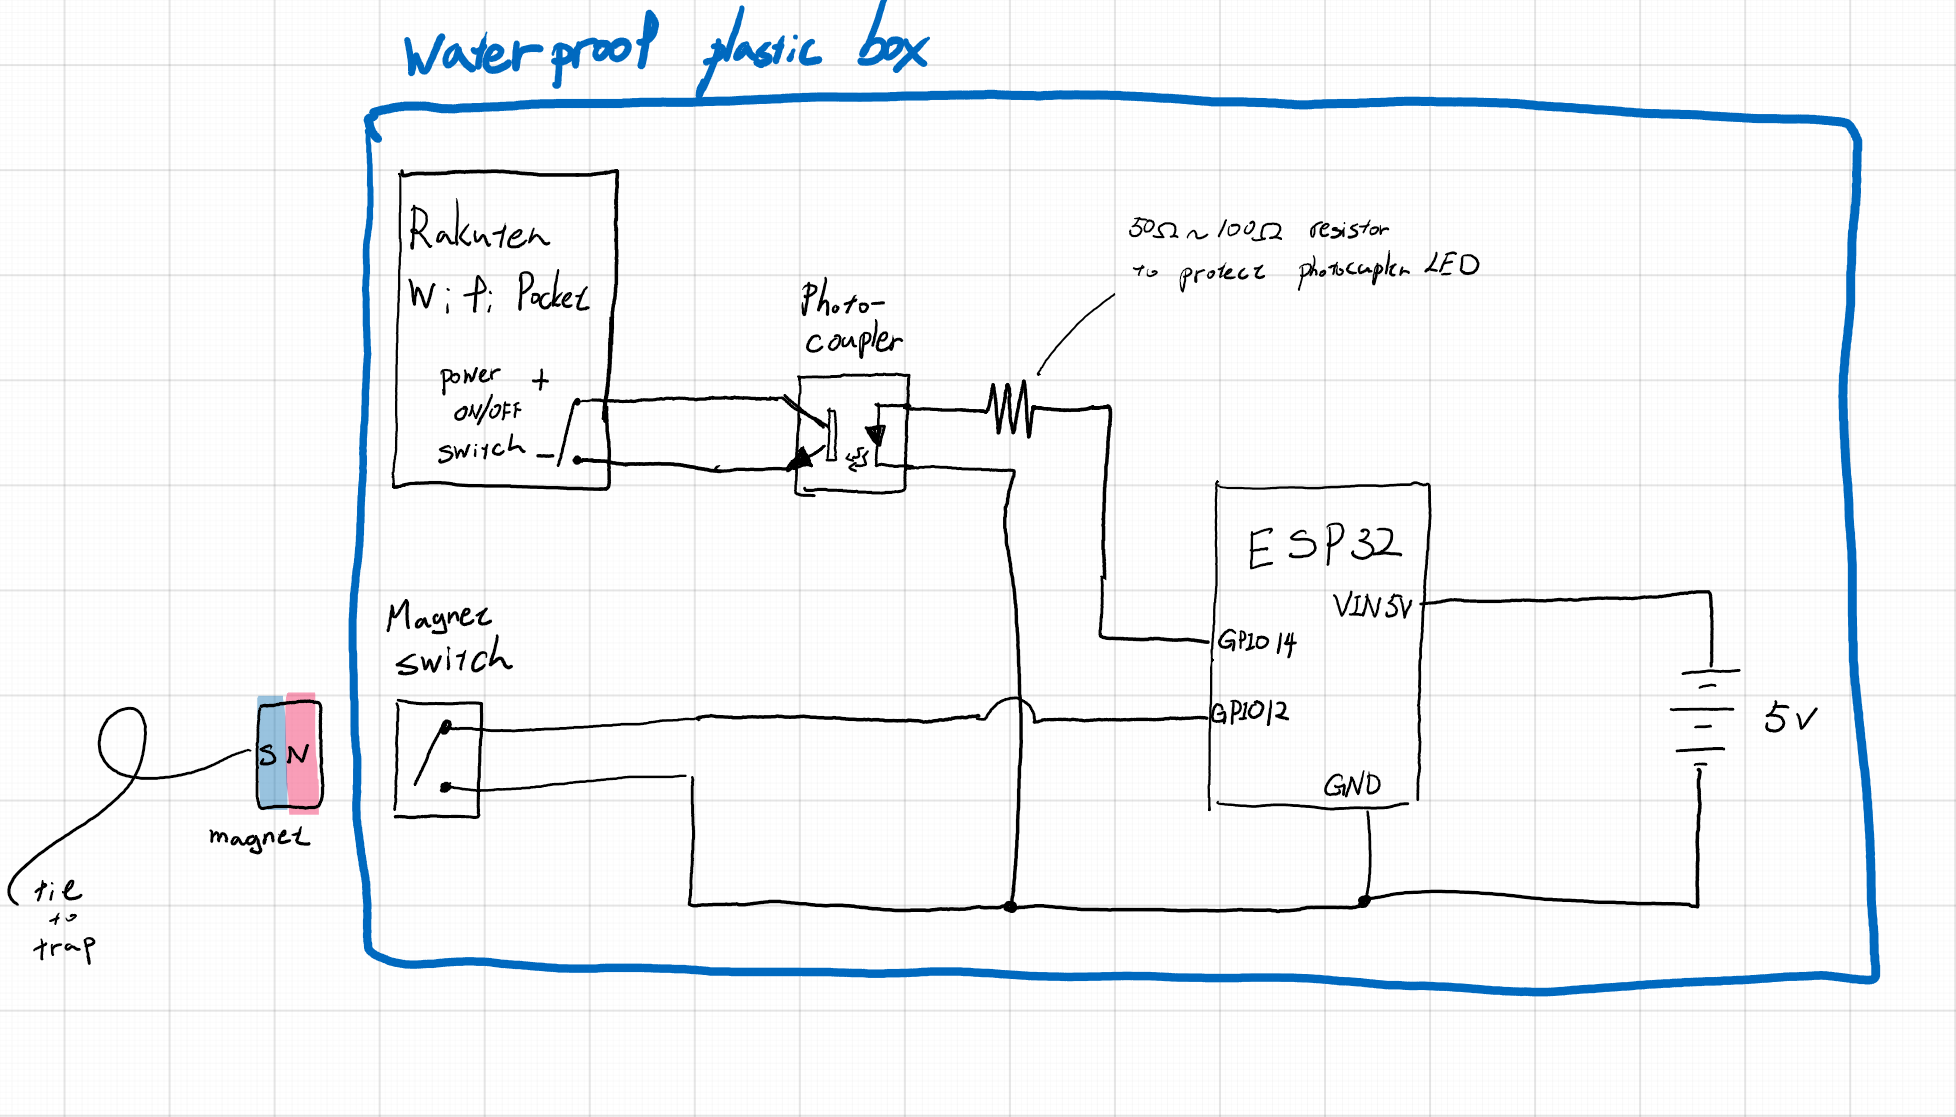 Waterproof plastic box
Rakuten
Wifi Pocket
power +
ON/OFF
switch -
Photo-
coupler
50Ω~100Ω resistor
to protect photocupler LED
ESP32
VIN5V
GPIO14
GPIO12
GND
5V
Magnet
switch
S N
magnet
tie
to
trap